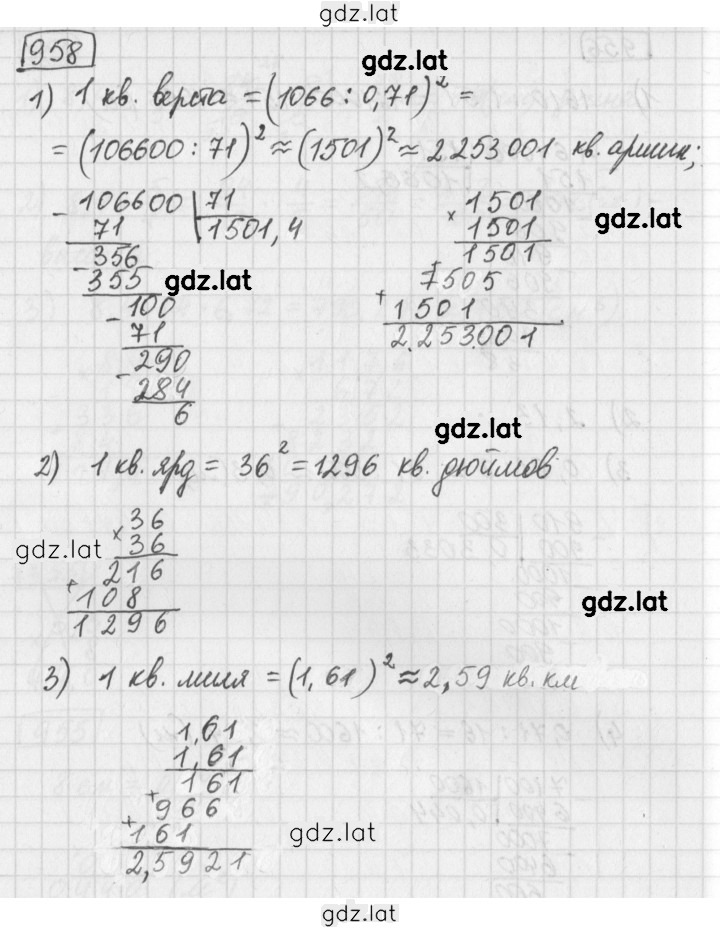 gdz.lat
958
gdz.lat
1) 1 кв. верста = (1066 : 0,71)² =
= (106600 : 71)² ≈ (1501)² ≈ 2253001 кв. аршин;
- 106600 | 71
71 | 1501,4
- 356
355
gdz.lat
- 100
71
- 290
284
6
× 1501
1501
gdz.lat
1501
7505
+ 1501
2.253.001
gdz.lat
2) 1 кв. ярд = 36² = 1296 кв. дюймов
× 36
36
gdz.lat
216
+ 108
1296
gdz.lat
3) 1 кв. миля = (1,61)² ≈ 2,59 кв. км
1,61
1,61
161
+ 966
+ 161
2,5921
gdz.lat
gdz.lat